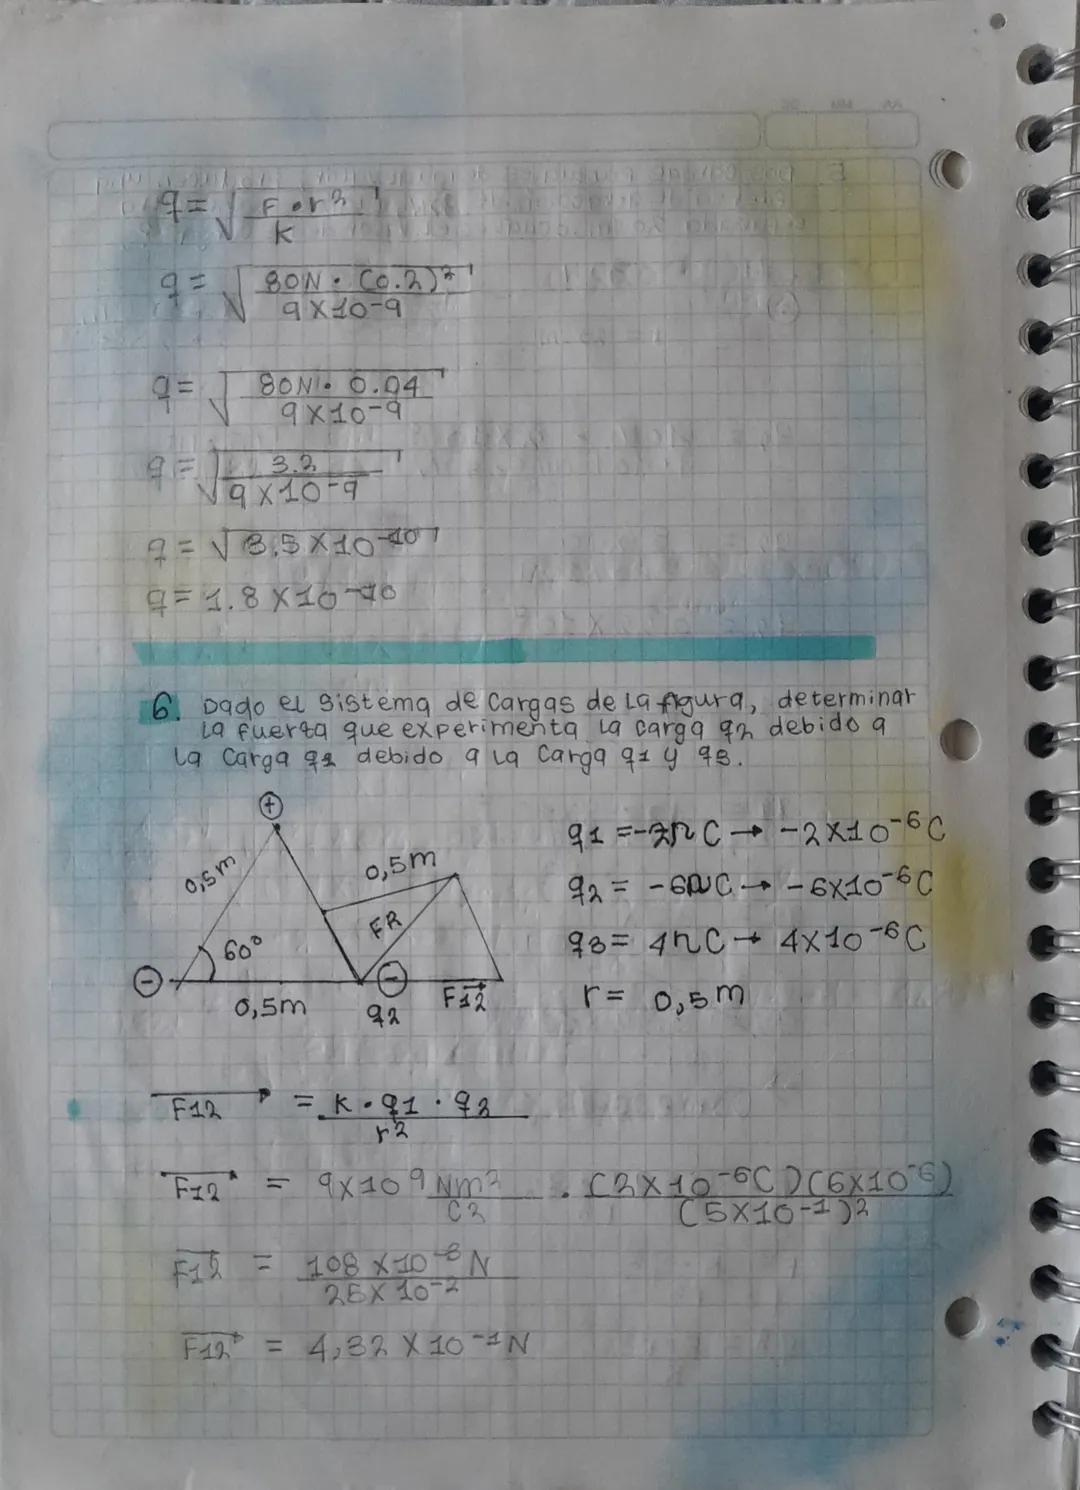 q = √ F • r²
K
q = √ 80N • (0.2)²
9 X 10-9
q = √ 80N • 0.04
9 X 10-9
q = √ 3.2
9 X 10-9
q = √ 3.5 X 10-10
q = 1.8 X 10-10
6. Dado el sistema de cargas de la figura, determinar
la fuerza que experimenta la carga q2 debido a
la carga q1 debido a la carga q1 y q3.
+
0,5m
0,5m
FR
60°
-
-
0,5m
q2
F12
q1 = -2nC → -2X10-6C
q2 = -6nC → -6X10-6C
q3 = 4nC → 4X10-6C
r = 0,5m
F12 = K • q1 • q2
r2
F12 = 9X109 Nm2 . (2X10-6C)(6X10-6)
C2 (5X10-1)2
F12 = 108 X 10-3 N
25X10-2
F12 = 4,32 X 10-1N